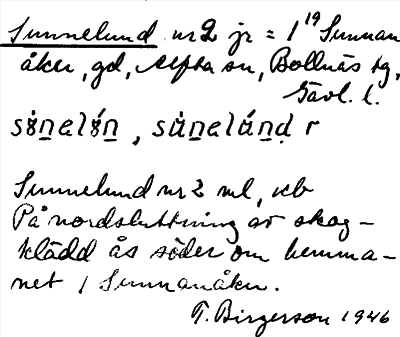 Sunnelund nr 2 jr = 1 19 Sunnan
åker, gd, Alfta sn, Bollnäs tg,
Gävl. l.
r
Sunnelund nr 2 ml, vcb
På nordsluttning av skog-
klädd ås söder om hemma-
net 1 Sunnanåker.
T. Birgerson 1946